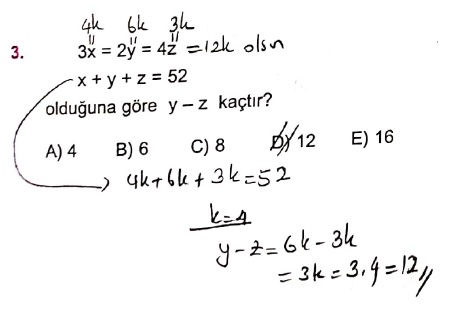 4k 6k 3k
3. 3x = 2y = 4z = 12k olsn
x + y + z = 52
olduğuna göre y – z kaçtır?
A) 4 B) 6 C) 8 D) 12 E) 16
4k + 6k + 3k = 52
k = 4
y – z = 6k – 3k
= 3k = 3.4 = 12,,